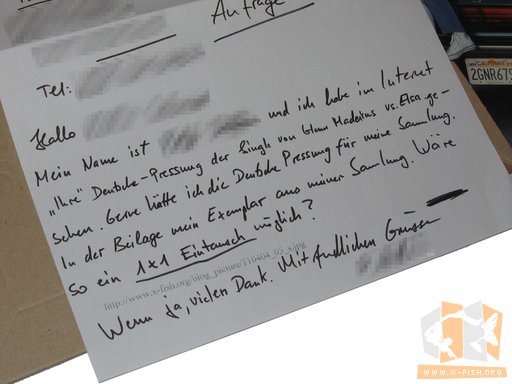 Anfrage
Tel:
Hallo
Mein Name ist und ich habe im Internet
"Ihre" Deutsche-Pressung der Single von Glam Madeiras vs. Elca ge-
sehen. Gerne hätte ich die Deutsche Pressung für meine Sammlung.
In der Beilage mein Exemplar aus meiner Samlung. Wäre
so ein 1x1 Eintausch möglich?
http://www.x-fish.org/blog_picture/110404_05_x.jpg
Wenn ja, vielen Dank. Mit freundlichen Grüssen
CALIFORNIA
2GNR679
WWW.X-FISH.ORG